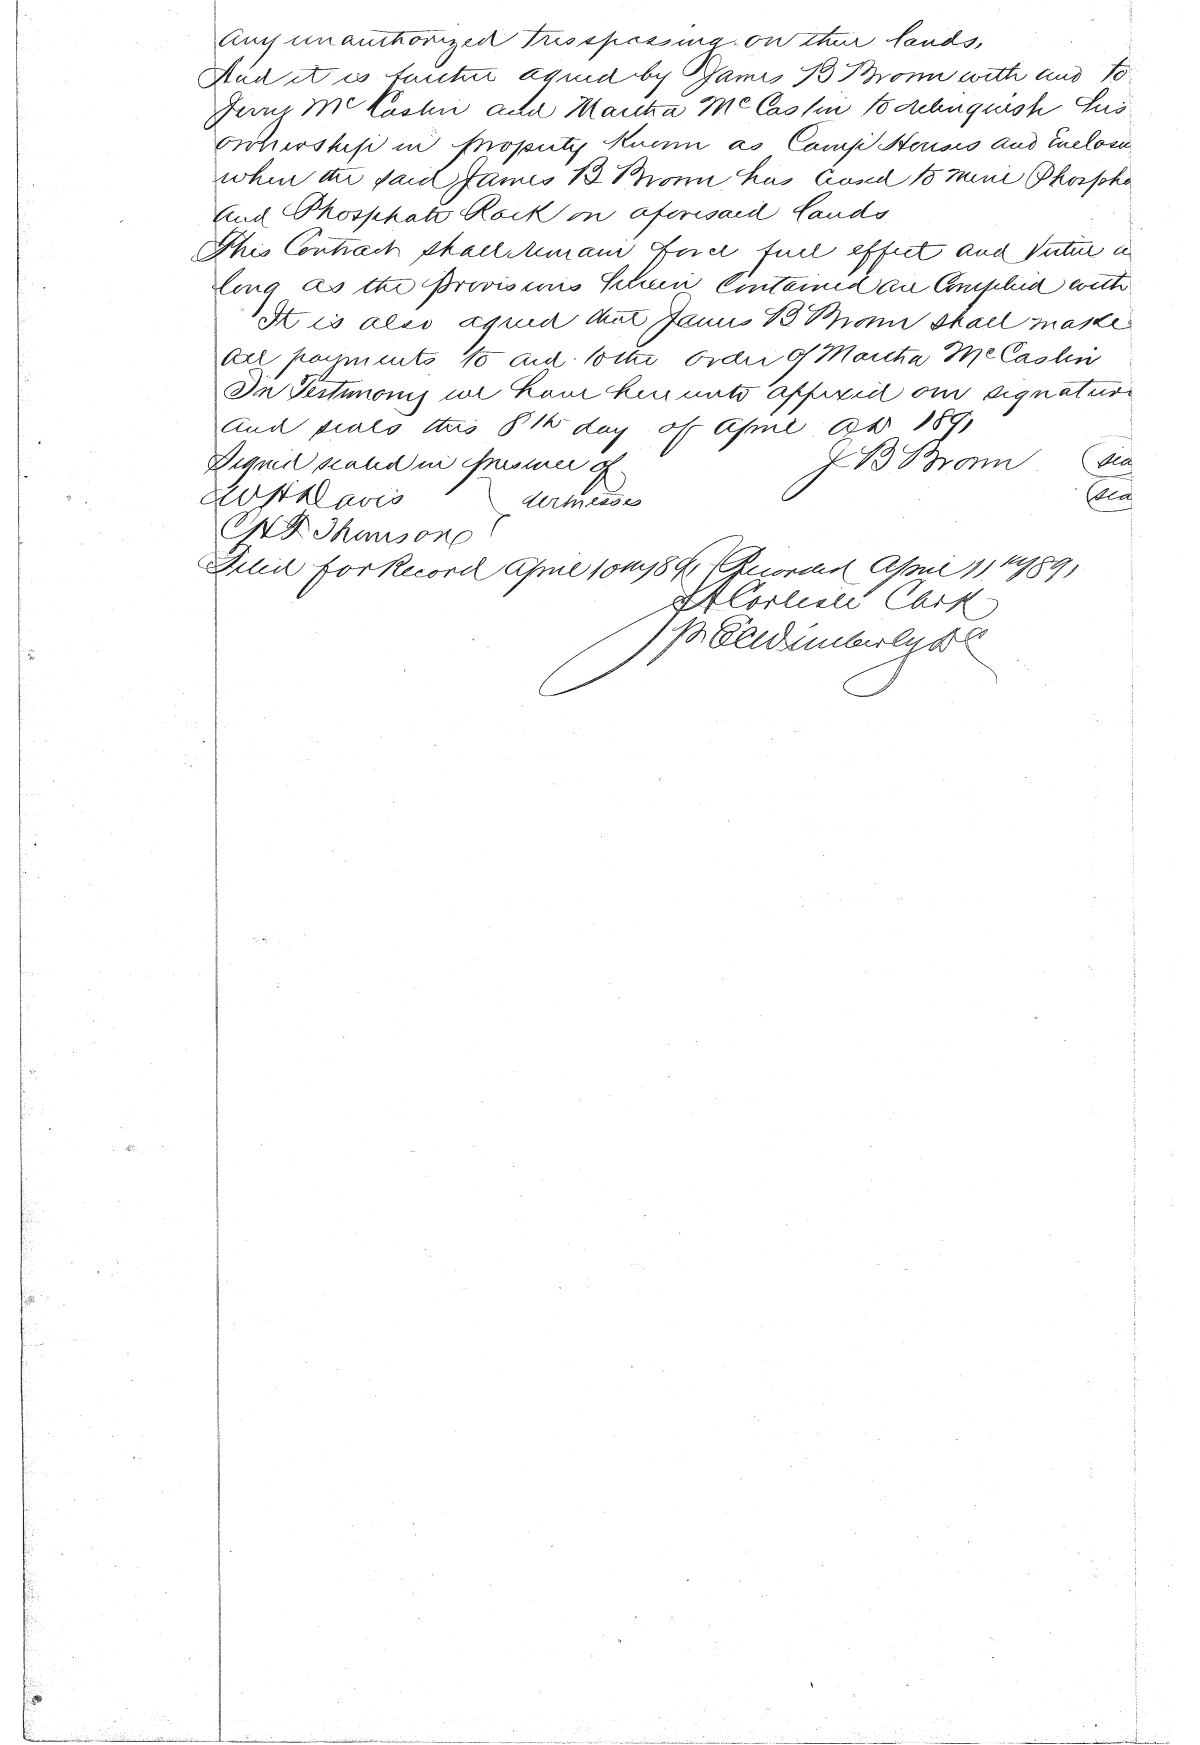 any unauthorized tresspassing on their lands,
And it is further agreed by James B Brown with and to
Jerry McCaslin and Martha McCaslin to relinquish his
ownership in property known as Camp Houses and Enclosu
when the said James B Brown has ceased to mine Phospha
and Phosphate Rock on aforesaid lands
This Contract shall remain force full effect and Virtue a
long as the provisions herein contained are Complied with
It is also agreed that James B Brown shall make
all payments to and to the order of Martha McCaslin
In Testimony we have hereunto affixed our signature
and seals this 8th day of April AD 1891
Signed sealed in presence of J B Brown (sea
Davis witnesses (sea
Thomson
Filed for Record April 10th 1891 Recorded April 11th 1891
Carlisle Clerk
pr Wimberly DC